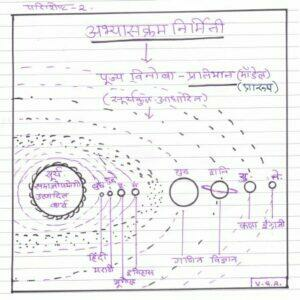 परिशिष्ट - २.
अभ्यासक्रम निर्मिती
पूज्य विनोबा - प्रतिमान (मॉडेल)
(प्रारूप)
(सूर्यकुल आधारित)
सूर्य
समाजोपयोगी
उत्पादक
कार्य
बुध शुक्र पृ. मं.
गुरु शनि यु. ने.
हिंदी
मराठी
भूगोल
इतिहास
गणित विज्ञान
कला इंग्रजी
V.G.A.